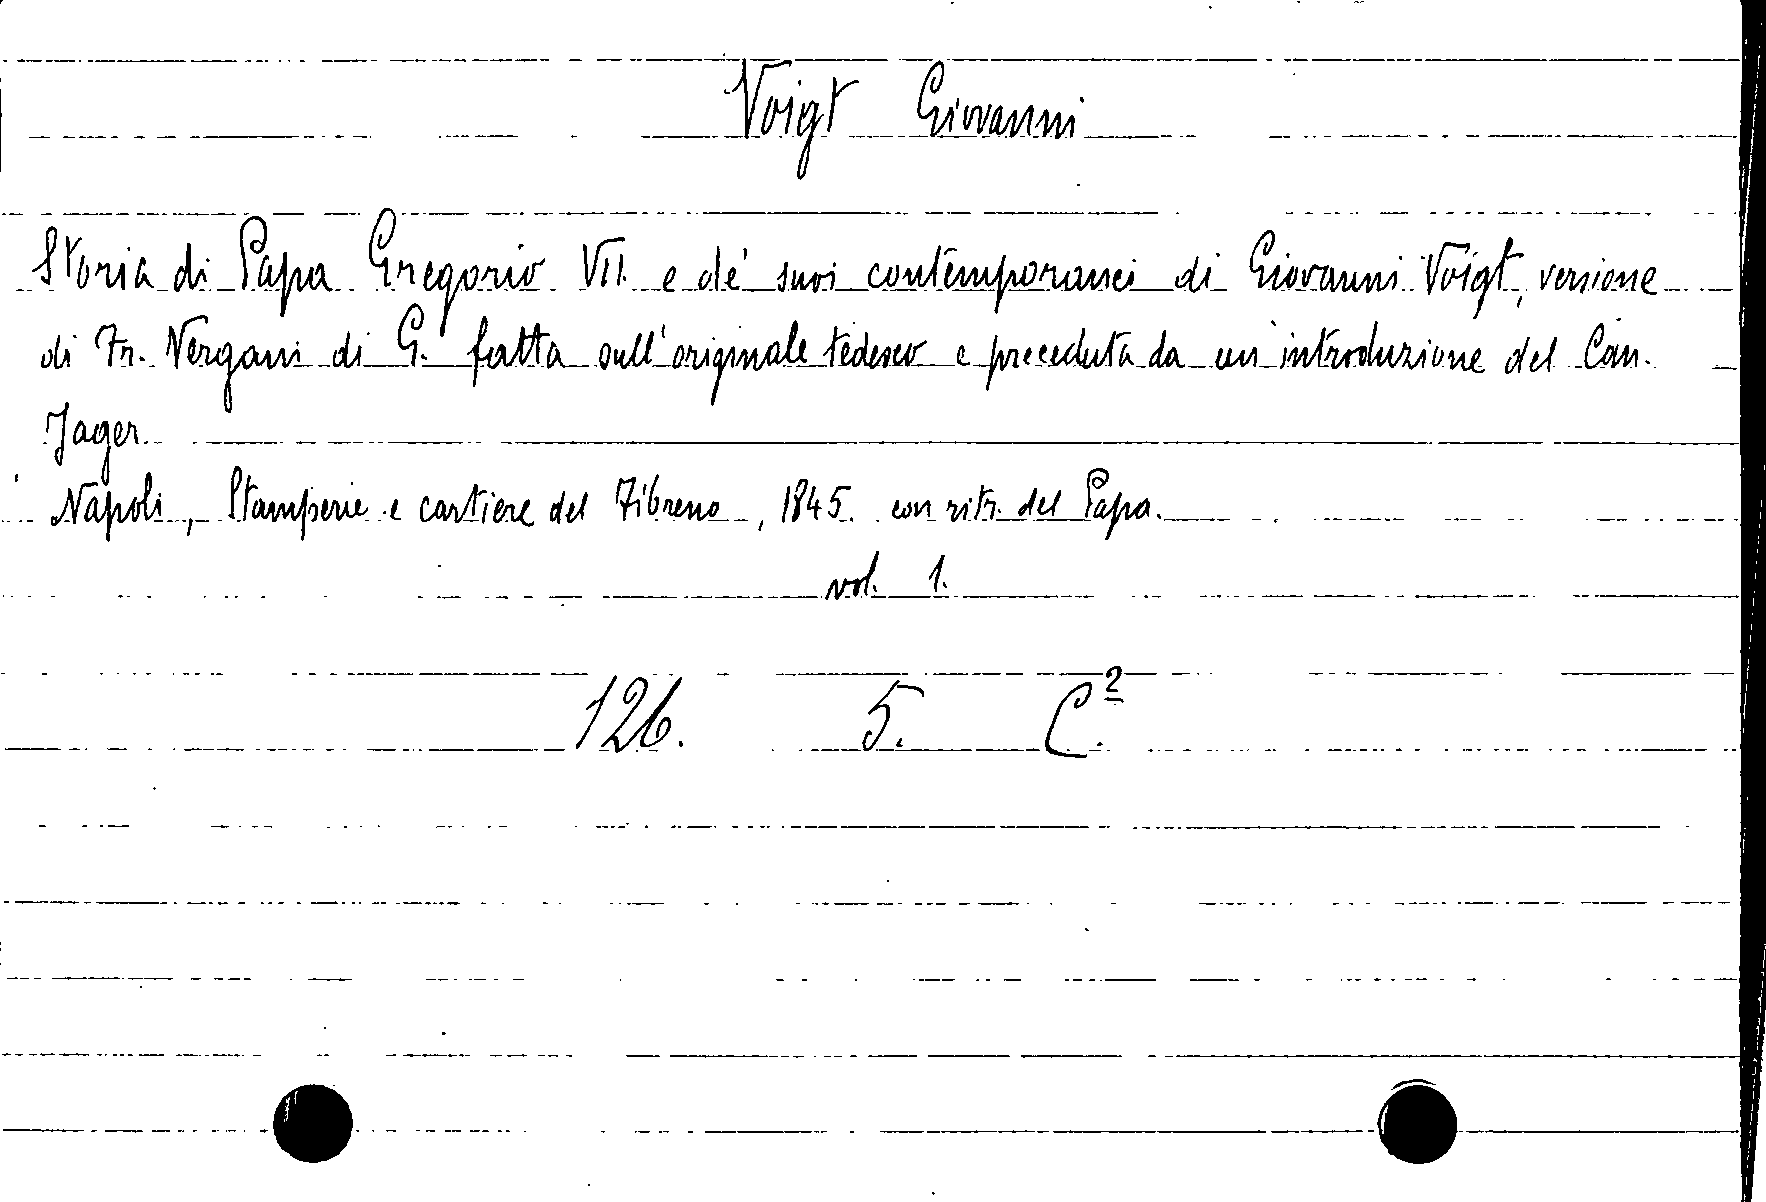 Voigt Giovanni
Storia di Papa Gregorio VII. e de' suoi contemporanei di Giovanni Voigt, versione
di Fr. Vergani di G. fatta sull'originale tedesco e preceduta da un'introduzione del Can.
Jager
Napoli, Stamperie e cartiere del Fibreno, 1845. con ritr. del Papa.
vol. 1.
126. 5. C.²